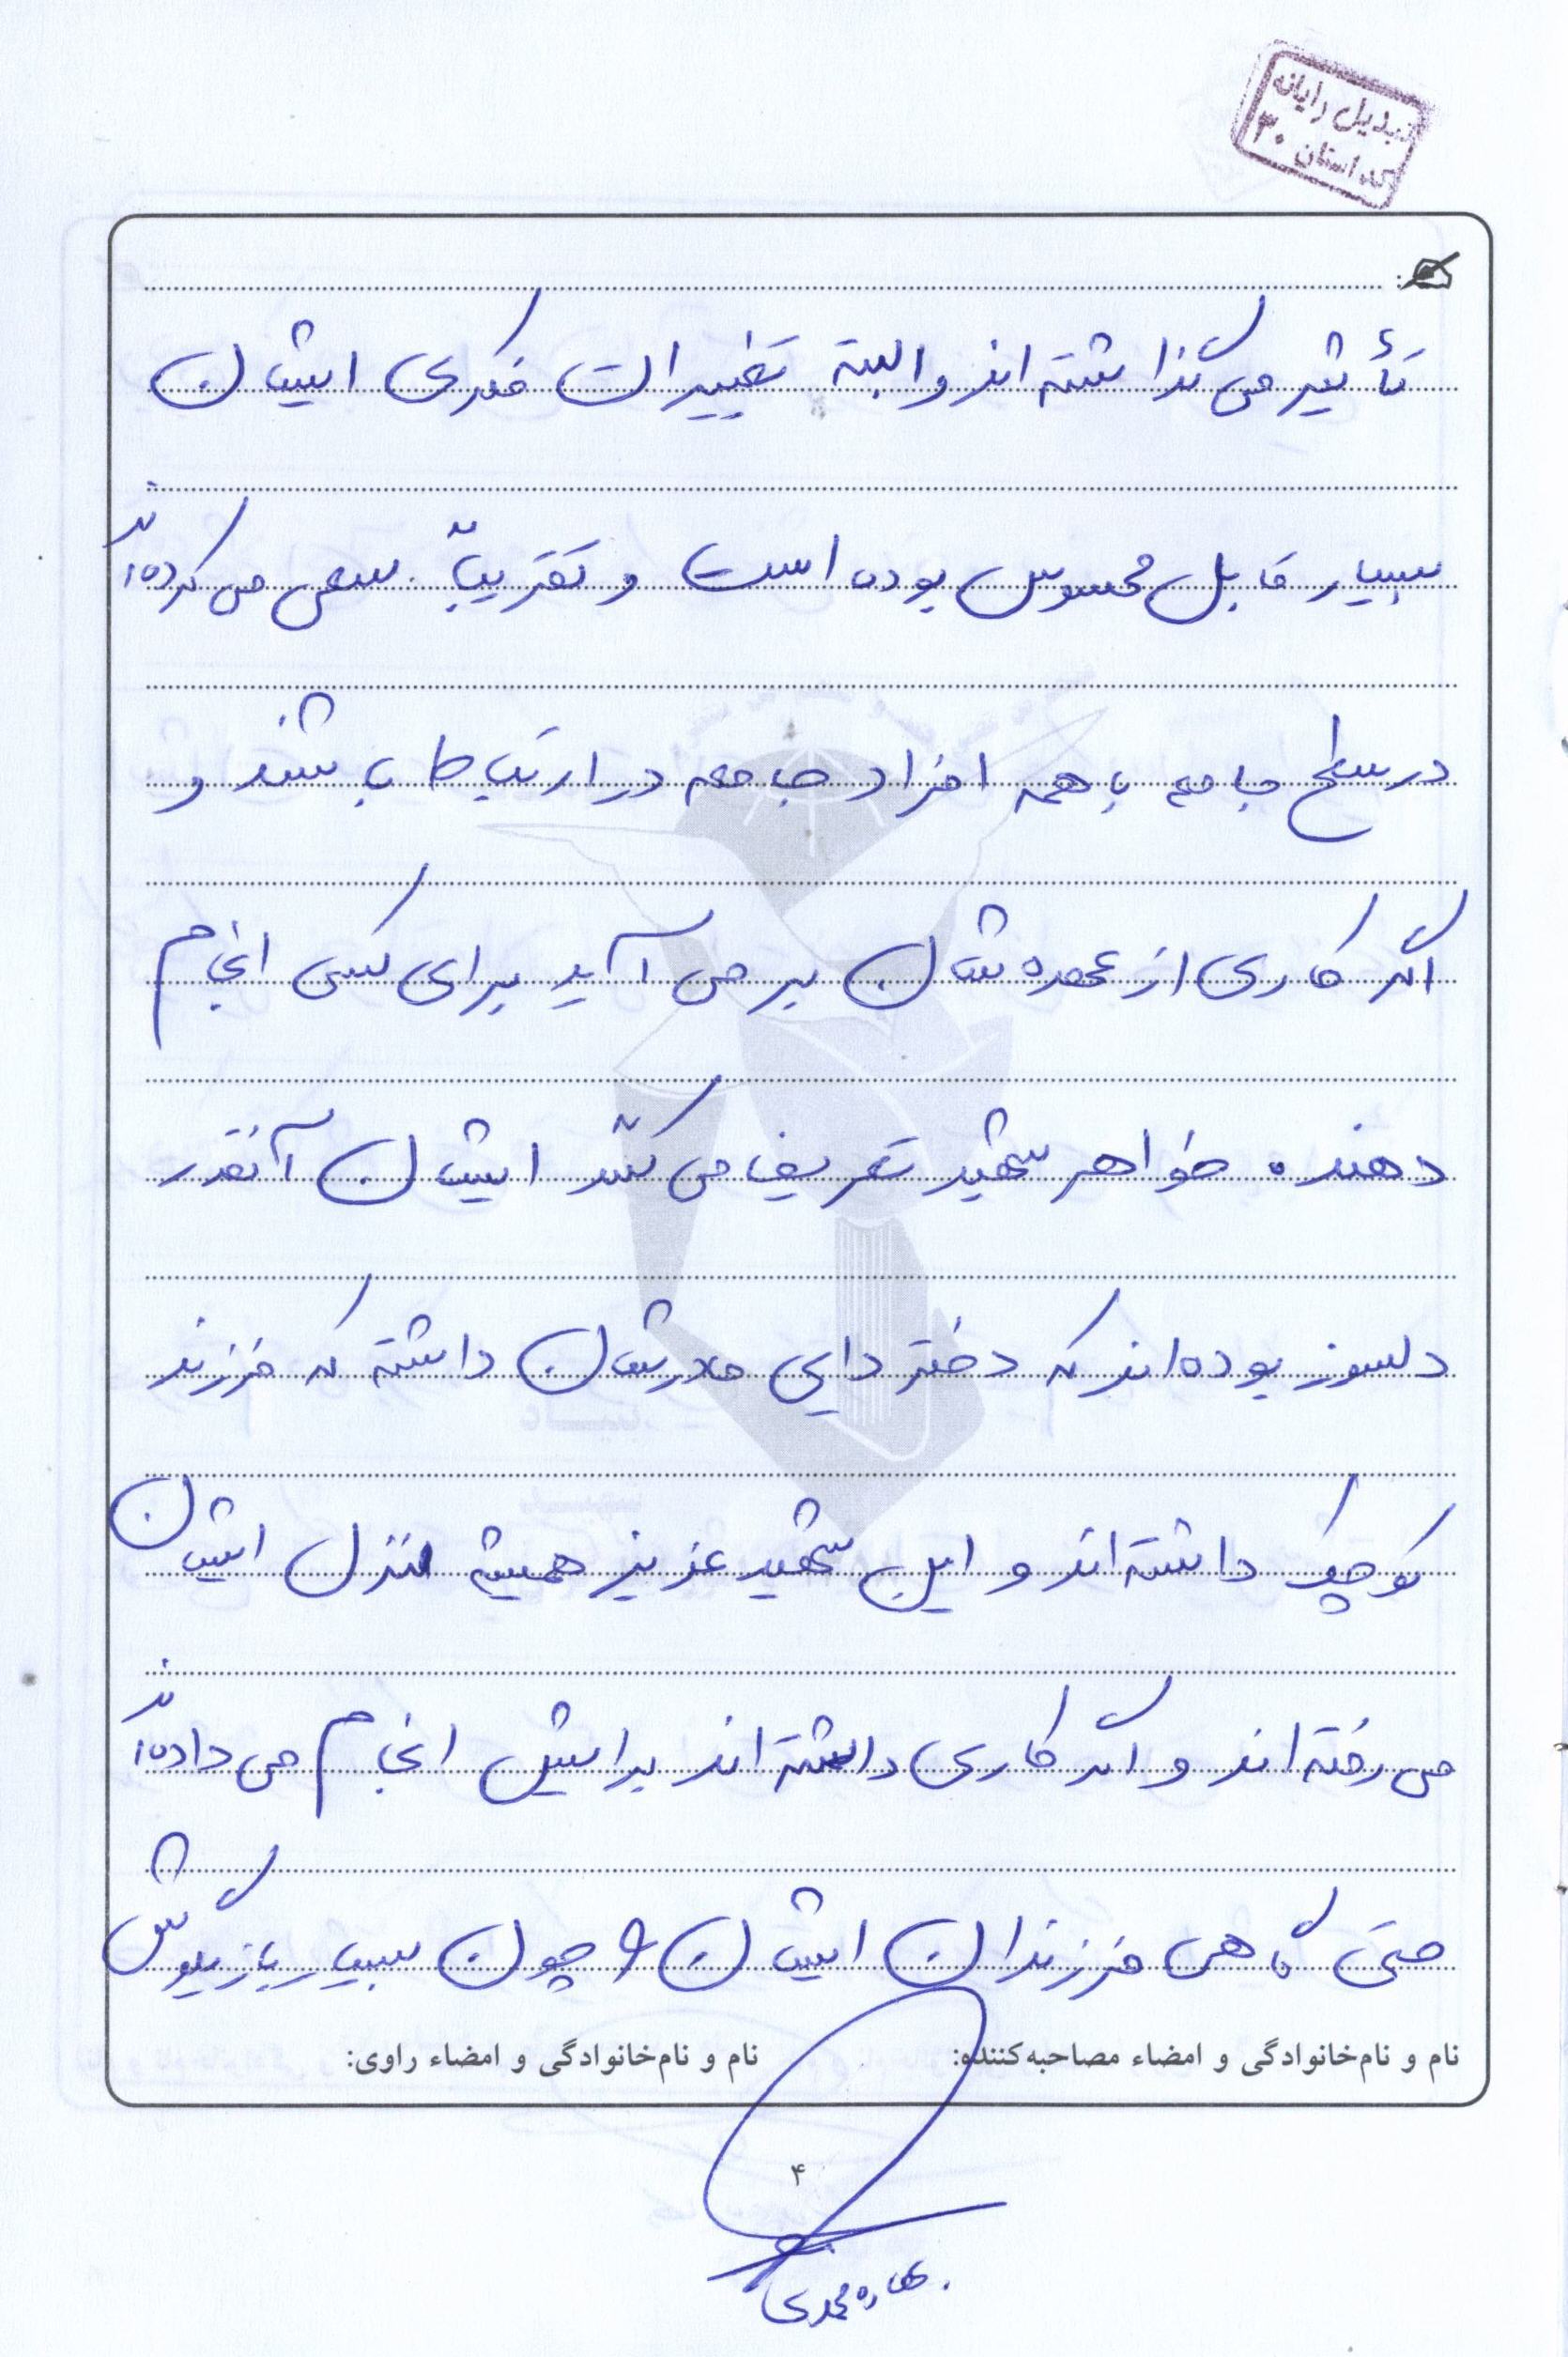 تبدیل رایانه
کد استان ۳۰
تأثیر می گذاشته اند و البته تغییرات فکری ایشان
بسیار قابل محسوس بوده است و تقریباً سعی می کرده اند
در سطح جامعه با همه افراد جامعه در ارتباط باشند و
اگر کاری از عهده شان بر می آید برای کسی انجام
دهند. خواهر شهید تعریف می کنند ایشان آنقدر
دلسوز بوده اند که دختر دایی مادرشان داشته که فرزند
کوچک داشته اند و این شهید عزیز همیشه منزل ایشان
می رفته اند و اگر کاری داشته اند برایش انجام می داده اند
حتی گاهی فرزندان ایشان چون بسیار بازیگوش
نام و نام‌خانوادگی و امضاء مصاحبه‌کننده:
نام و نام‌خانوادگی و امضاء راوی:
۴
بهاره محمدی